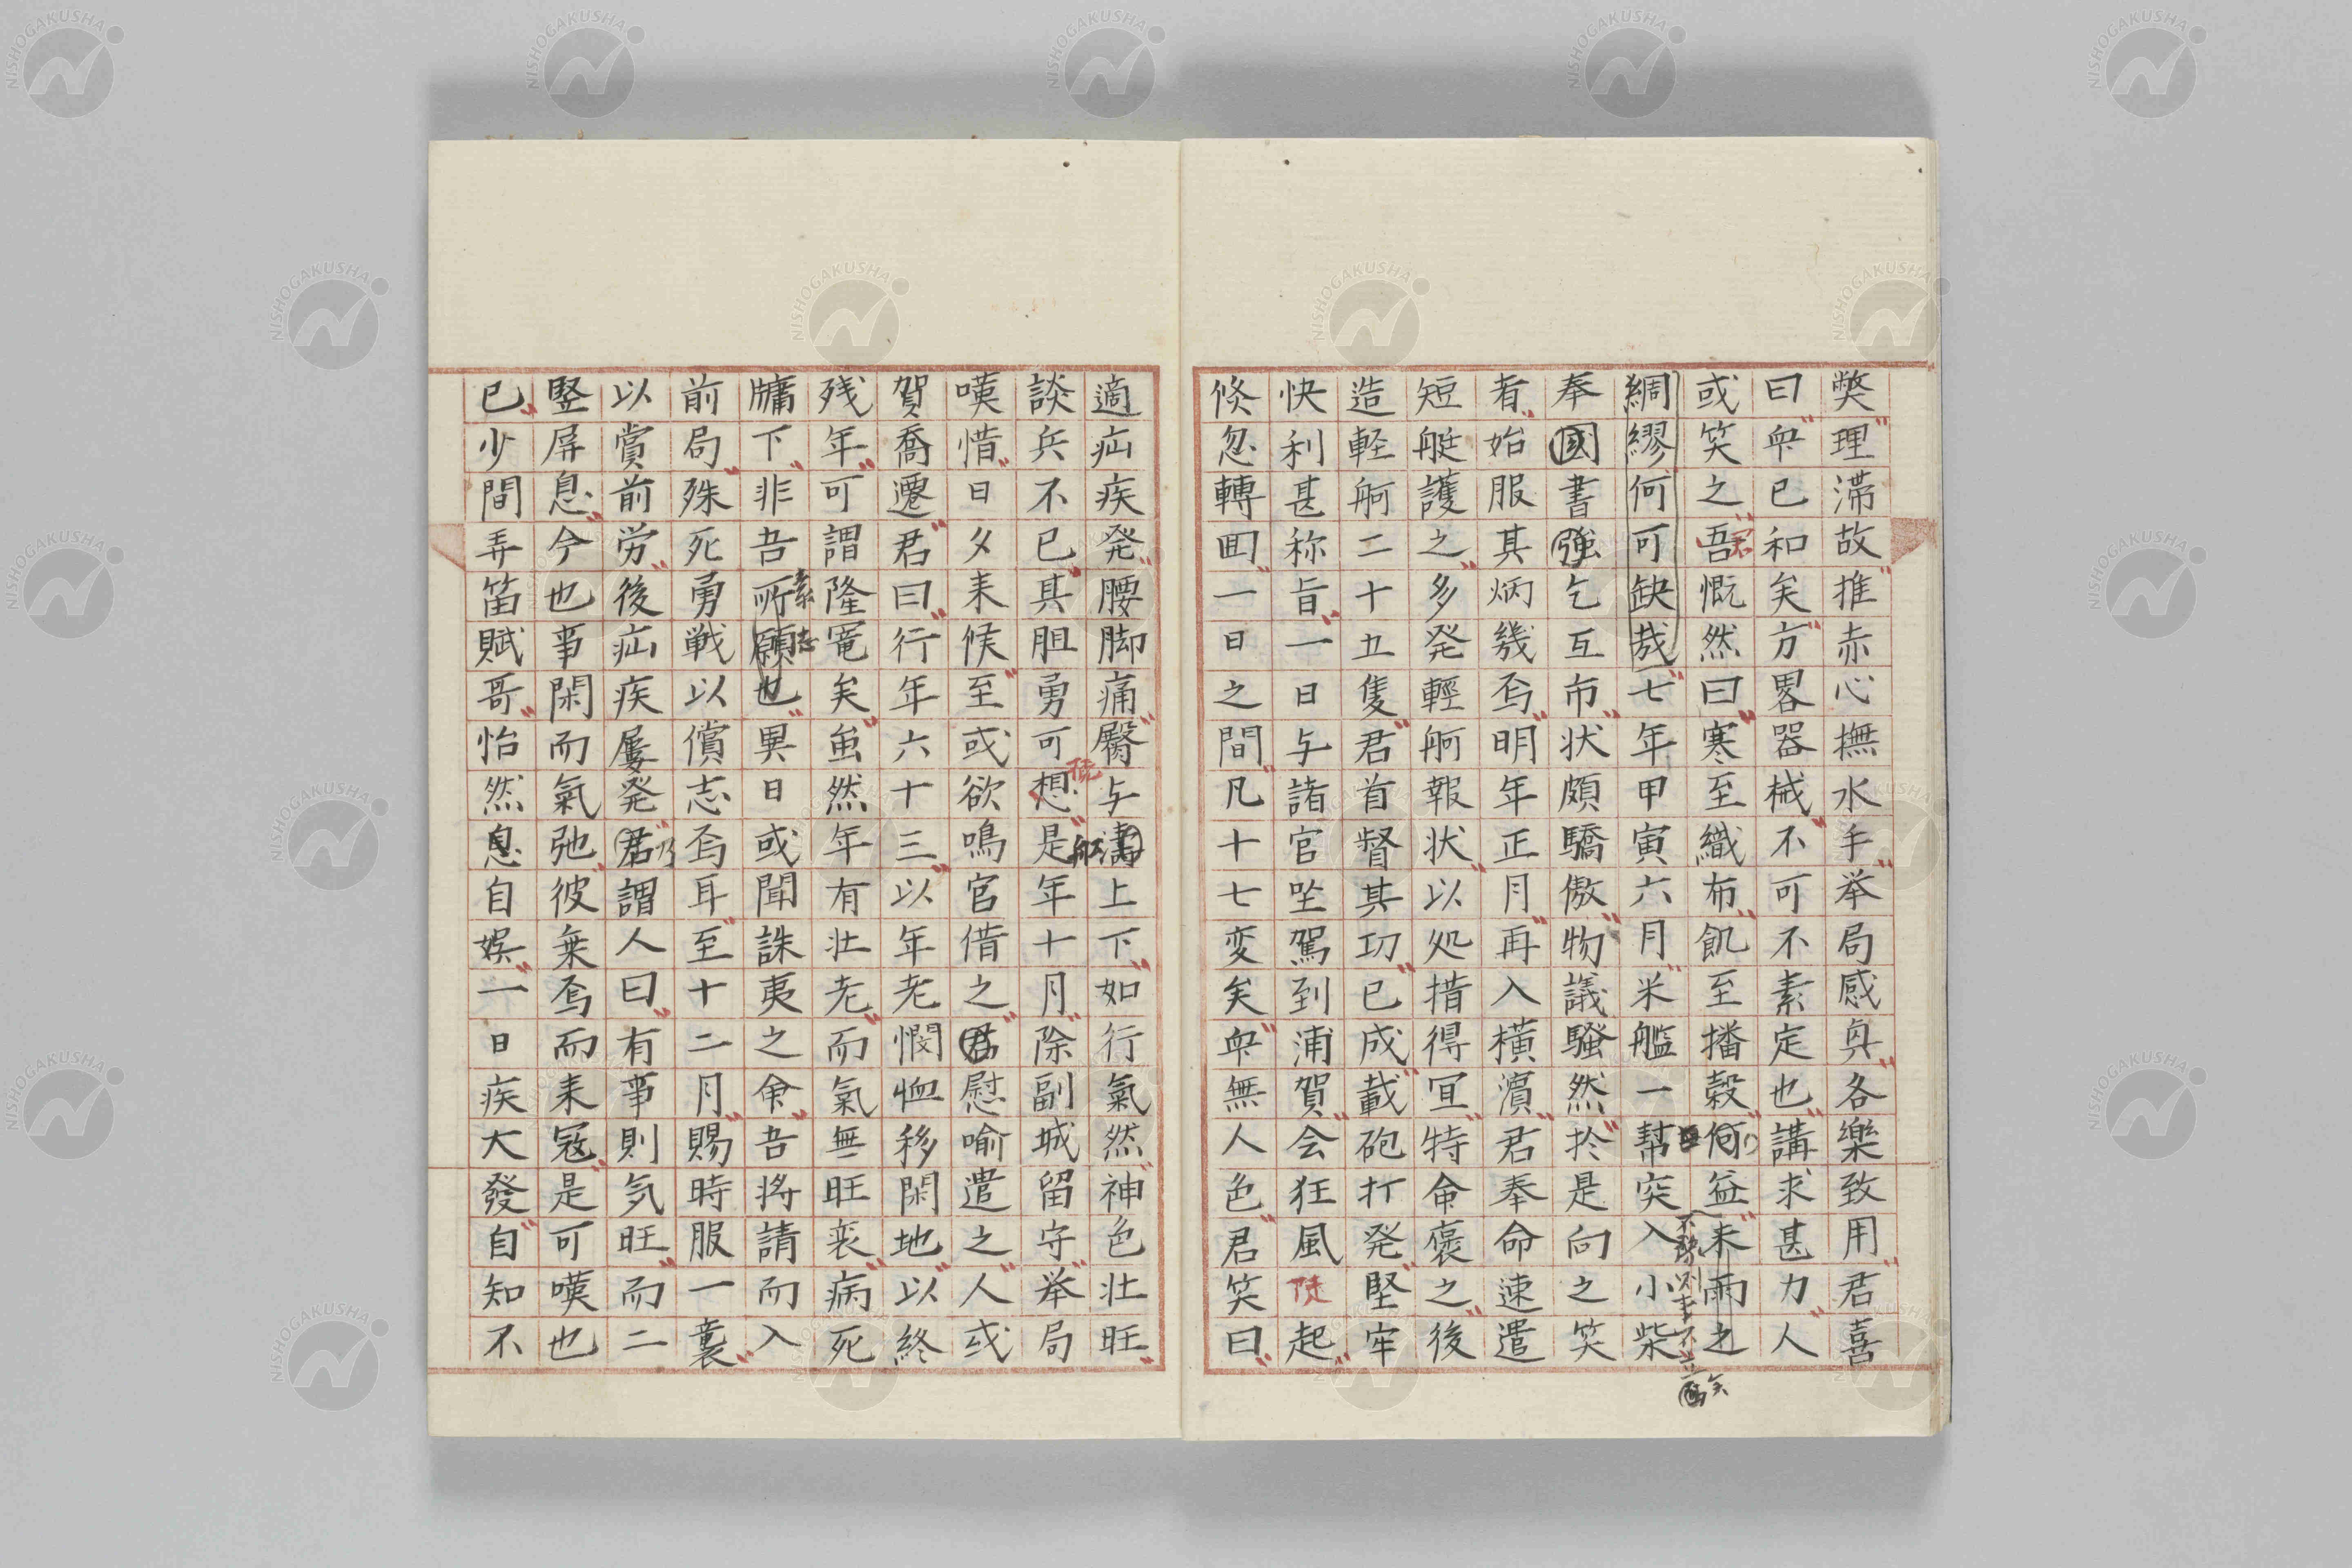 獘理滞故推赤心撫水手挙局感奐各樂致用君喜
曰𠱾已和矣方畧器械不可不素定也講求甚力人
或笑之吾慨然曰寒至織布飢至播穀何益未雨之
綢繆何可缺哉七年甲寅六月米艦一幇突入小柴
奉國書強乞互市状頗驕傲物議騒然扵是向之笑
者始服其炳幾焉明年正月再入横濵君奉命速遣
短艇護之多発輕舸報状以処措得宜特命褒之後
造軽舸二十五隻君首督其功已成載砲打発堅牢
快利甚称旨一日与諸官坐駕到浦賀会狂風陡起
倐忽轉囬一日之間凡十七変矣𠱾無人色君笑曰
適疝疾発腰脚痛臀与濤上下如行氣然神色壮旺
談兵不已其胆勇可想是年十月除副城留守挙局
嘆惜日夕来候至或欲鳴官借之君慰喻遣之人或
賀喬遷君曰行年六十三以年老憫恤移閑地以終
残年可謂隆寵矣虽然年有壮老而氣無旺衰病死
牗下非吾所願也異日或聞誅夷之命吾将請而入
前局殊死勇戦以償志焉耳至十二月賜時服一襲
以賞前労後疝疾屡発君謂人曰有事則気旺而二
竪屏息今也事閑而氣弛彼乗焉而来冦是可嘆也
已少間弄笛賦哥怡然息自娯一日疾大發自知不
NISHOGAKUSHA